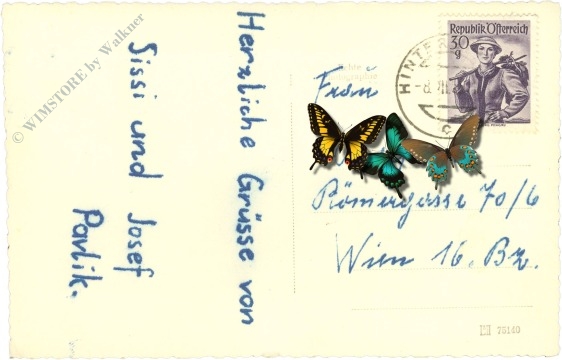 © WIMSTORE by Walkner
Herzliche Grüsse von
Sissi und Josef
Pavlik.
Republik Österreich
30
g
Frau
Römergasse 70/6
Wien 16. Bz.
75140